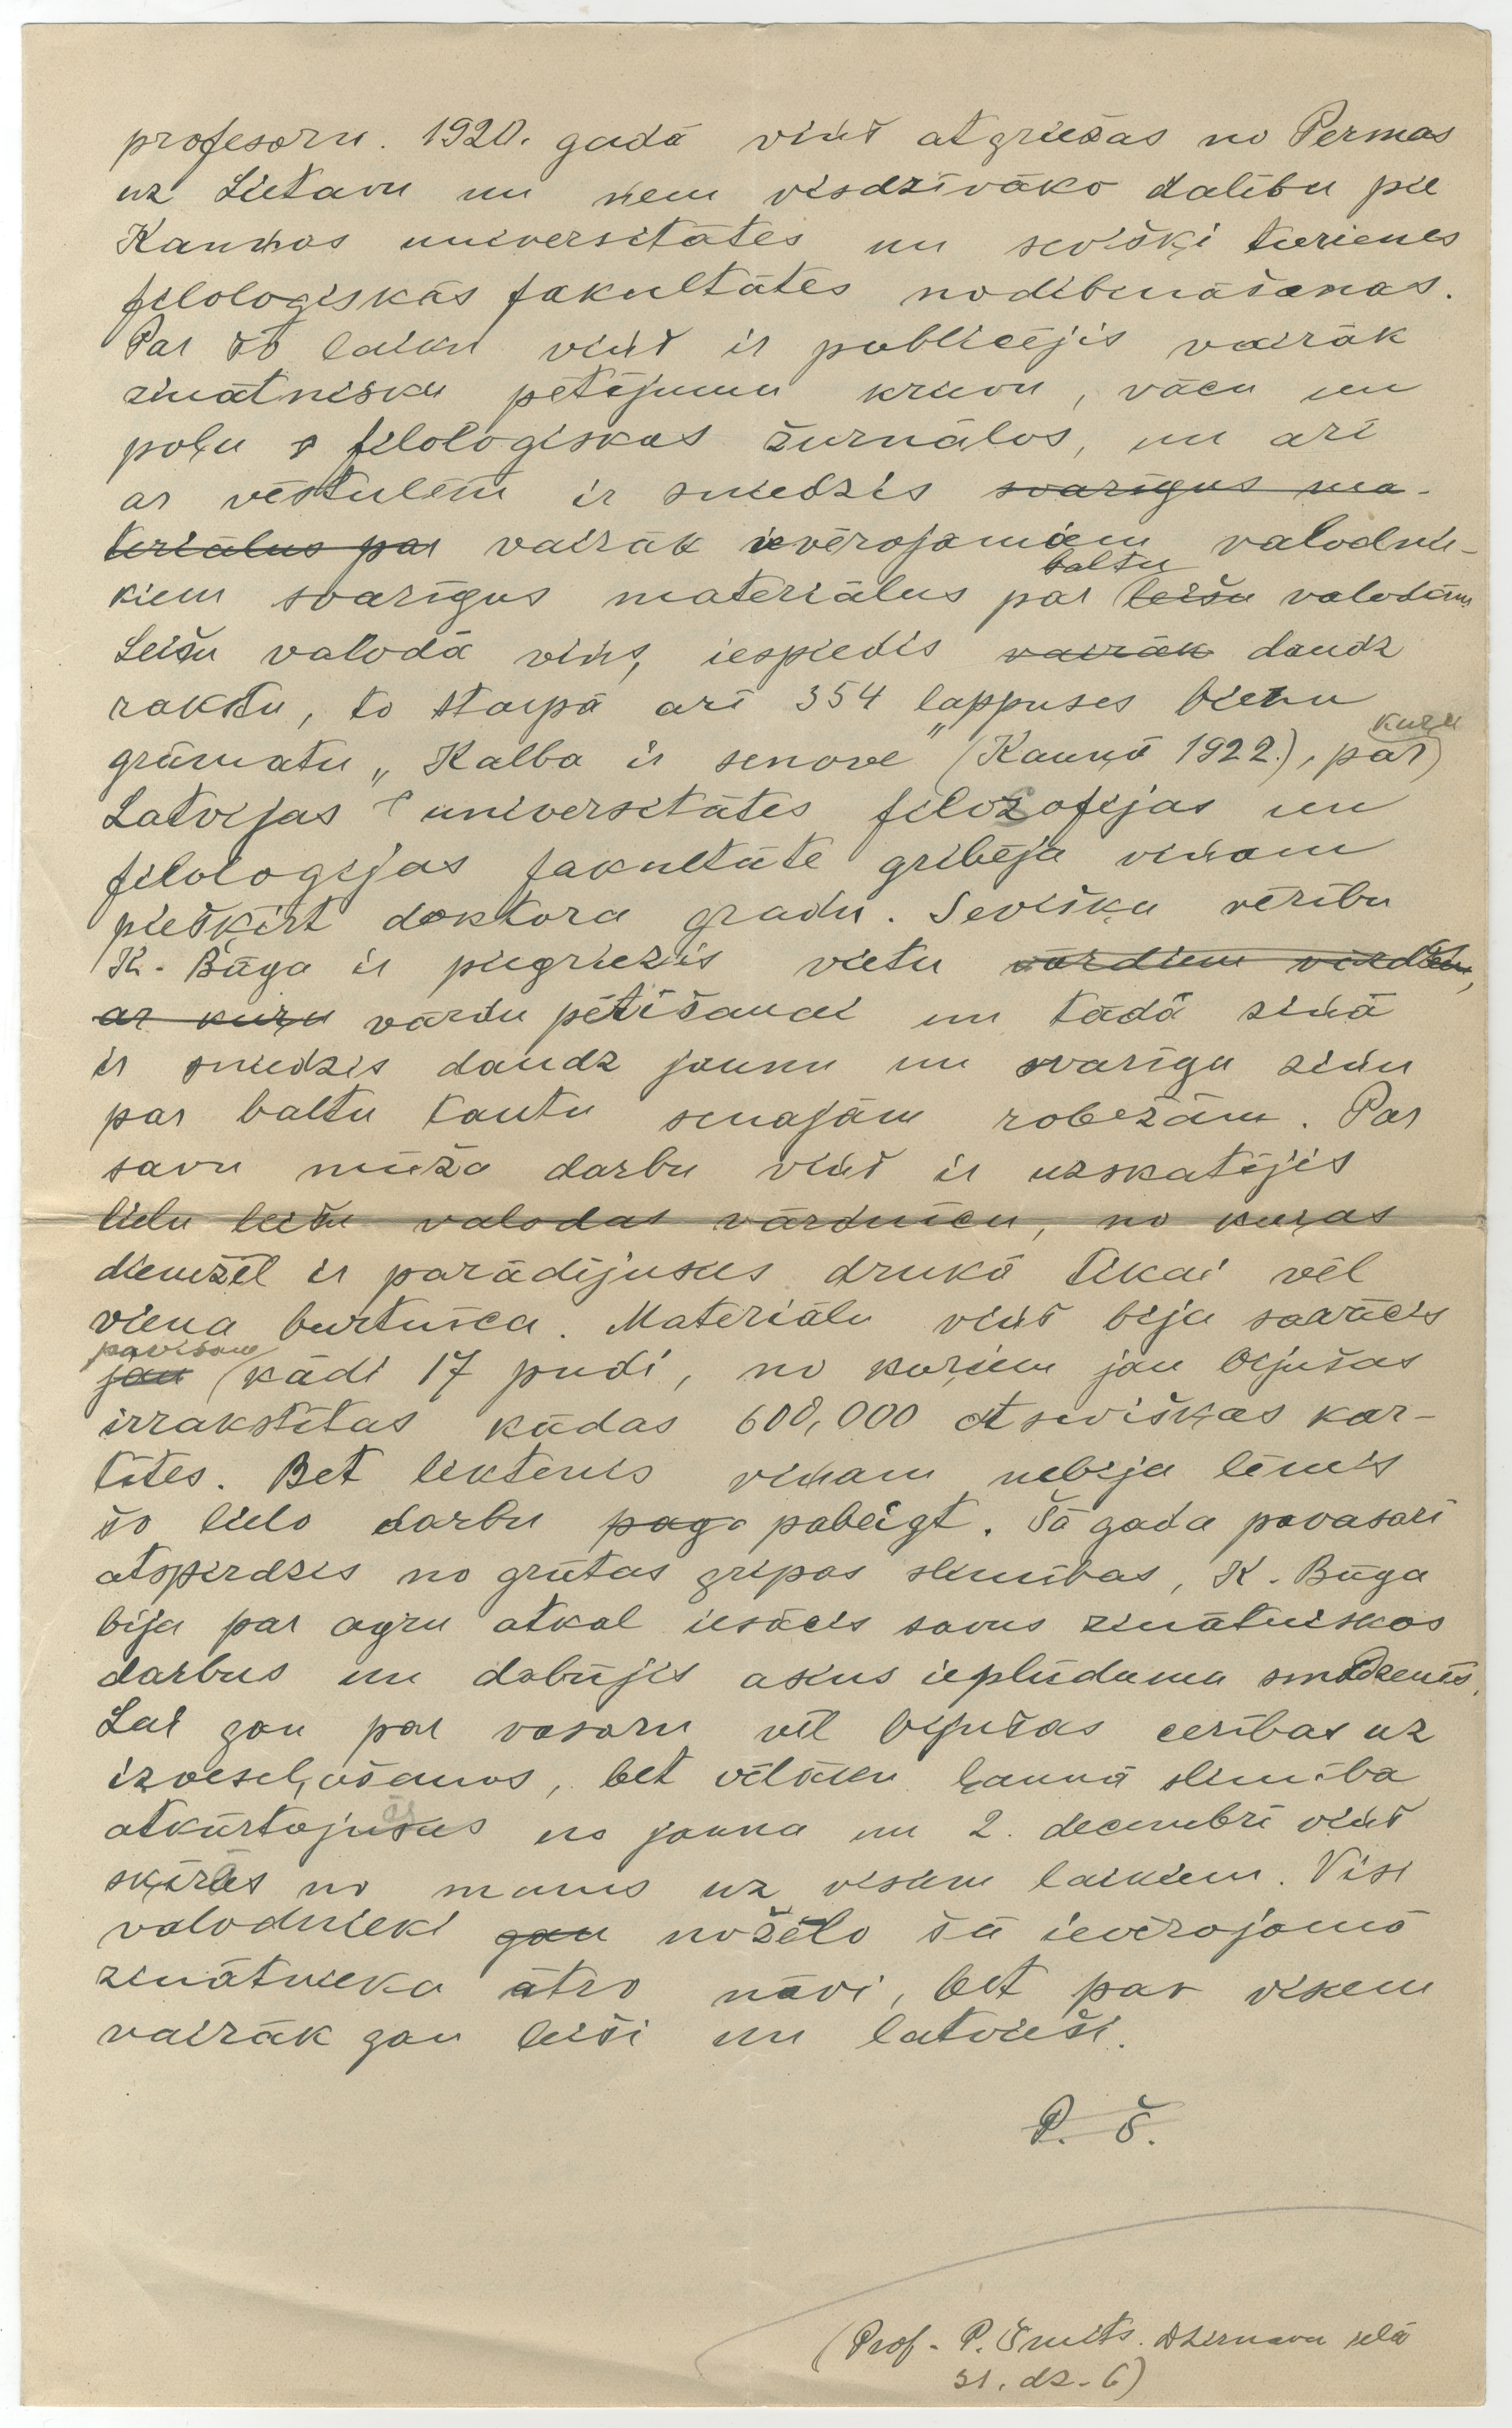 profesoru. 1920. gadā viņš atgriežas no Permas
uz Lietavu un ņem visdzīvāko dalību pie
Kaunas universitātes un sevišķi turienes
filoloģiskās fakultātes nodibināšanas.
Par šo laiku viņš ir publicējis vairāk
zinātnisku pētījumu krievu, vācu un
poļu filoloģiskos žurnālos, un arī
ar vēstulēm ir sniedzis svarīgus ma-
teriālus par vairāk ievērojamiem valodnie-
kiem svarīgus materiālus par leišu baltu valodām
Leišu valodā viņš iespiedis vairāk daudz
rakstu, to starpā arī 354 lappuses biezu
grāmatu „Kalba ir senovė" (Kauņā 1922.), par kuru
Latvijas universitātes filozofijas un
filoloģijas fakultāte gribēja viņam
piešķirt doktora gradu. Sevišķu vērību
K. Būga ir piegriezis vietu vārdiem
ar kuru vārdu pētīšanai un tādā ziņā
ir sniedzis daudz jaunu un svarīgu ziņu
par baltu tautu senajām robežām. Par
savu mūža darbu viņš ir uzskatījis
lielu leišu valodas vārdnīcu, no kuras
diemžēl ir parādījusies drukā tikai vēl
viena burtnīca. Materiālu viņš bija savācis
jau pavisam kādi 17 pudi, no kuriem jau bijušas
izrakstītas kādas 600,000 atsevišķas kar-
tītes. Bet liktenis viņam nebija lēmis
šo lielo darbu pag pabeigt. Šā gada pavasarī
atspirdzis no grūtas gripas slimības, K. Būga
bija par agru atkal iesācis savus zinātniskos
darbus un dabūjis asins ieplūdumu smadzenēs.
Lai gan par vasaru vēl bijušas cerības uz
izveseļošanos, bet vēlāku ļaunā slimība
atkārtojusies no jauna un 2. decembrī viņš
šķīrās no mums uz visiem laikiem. Visi
valodnieki gan nožēlo šā ievērojamā
zinātnieka ātro nāvi, bet par visiem
vairāk gan leiši un latvieši.
P. Š.
(Prof. P. Šmits. Dzirnavu ielā
31. dz. 6)